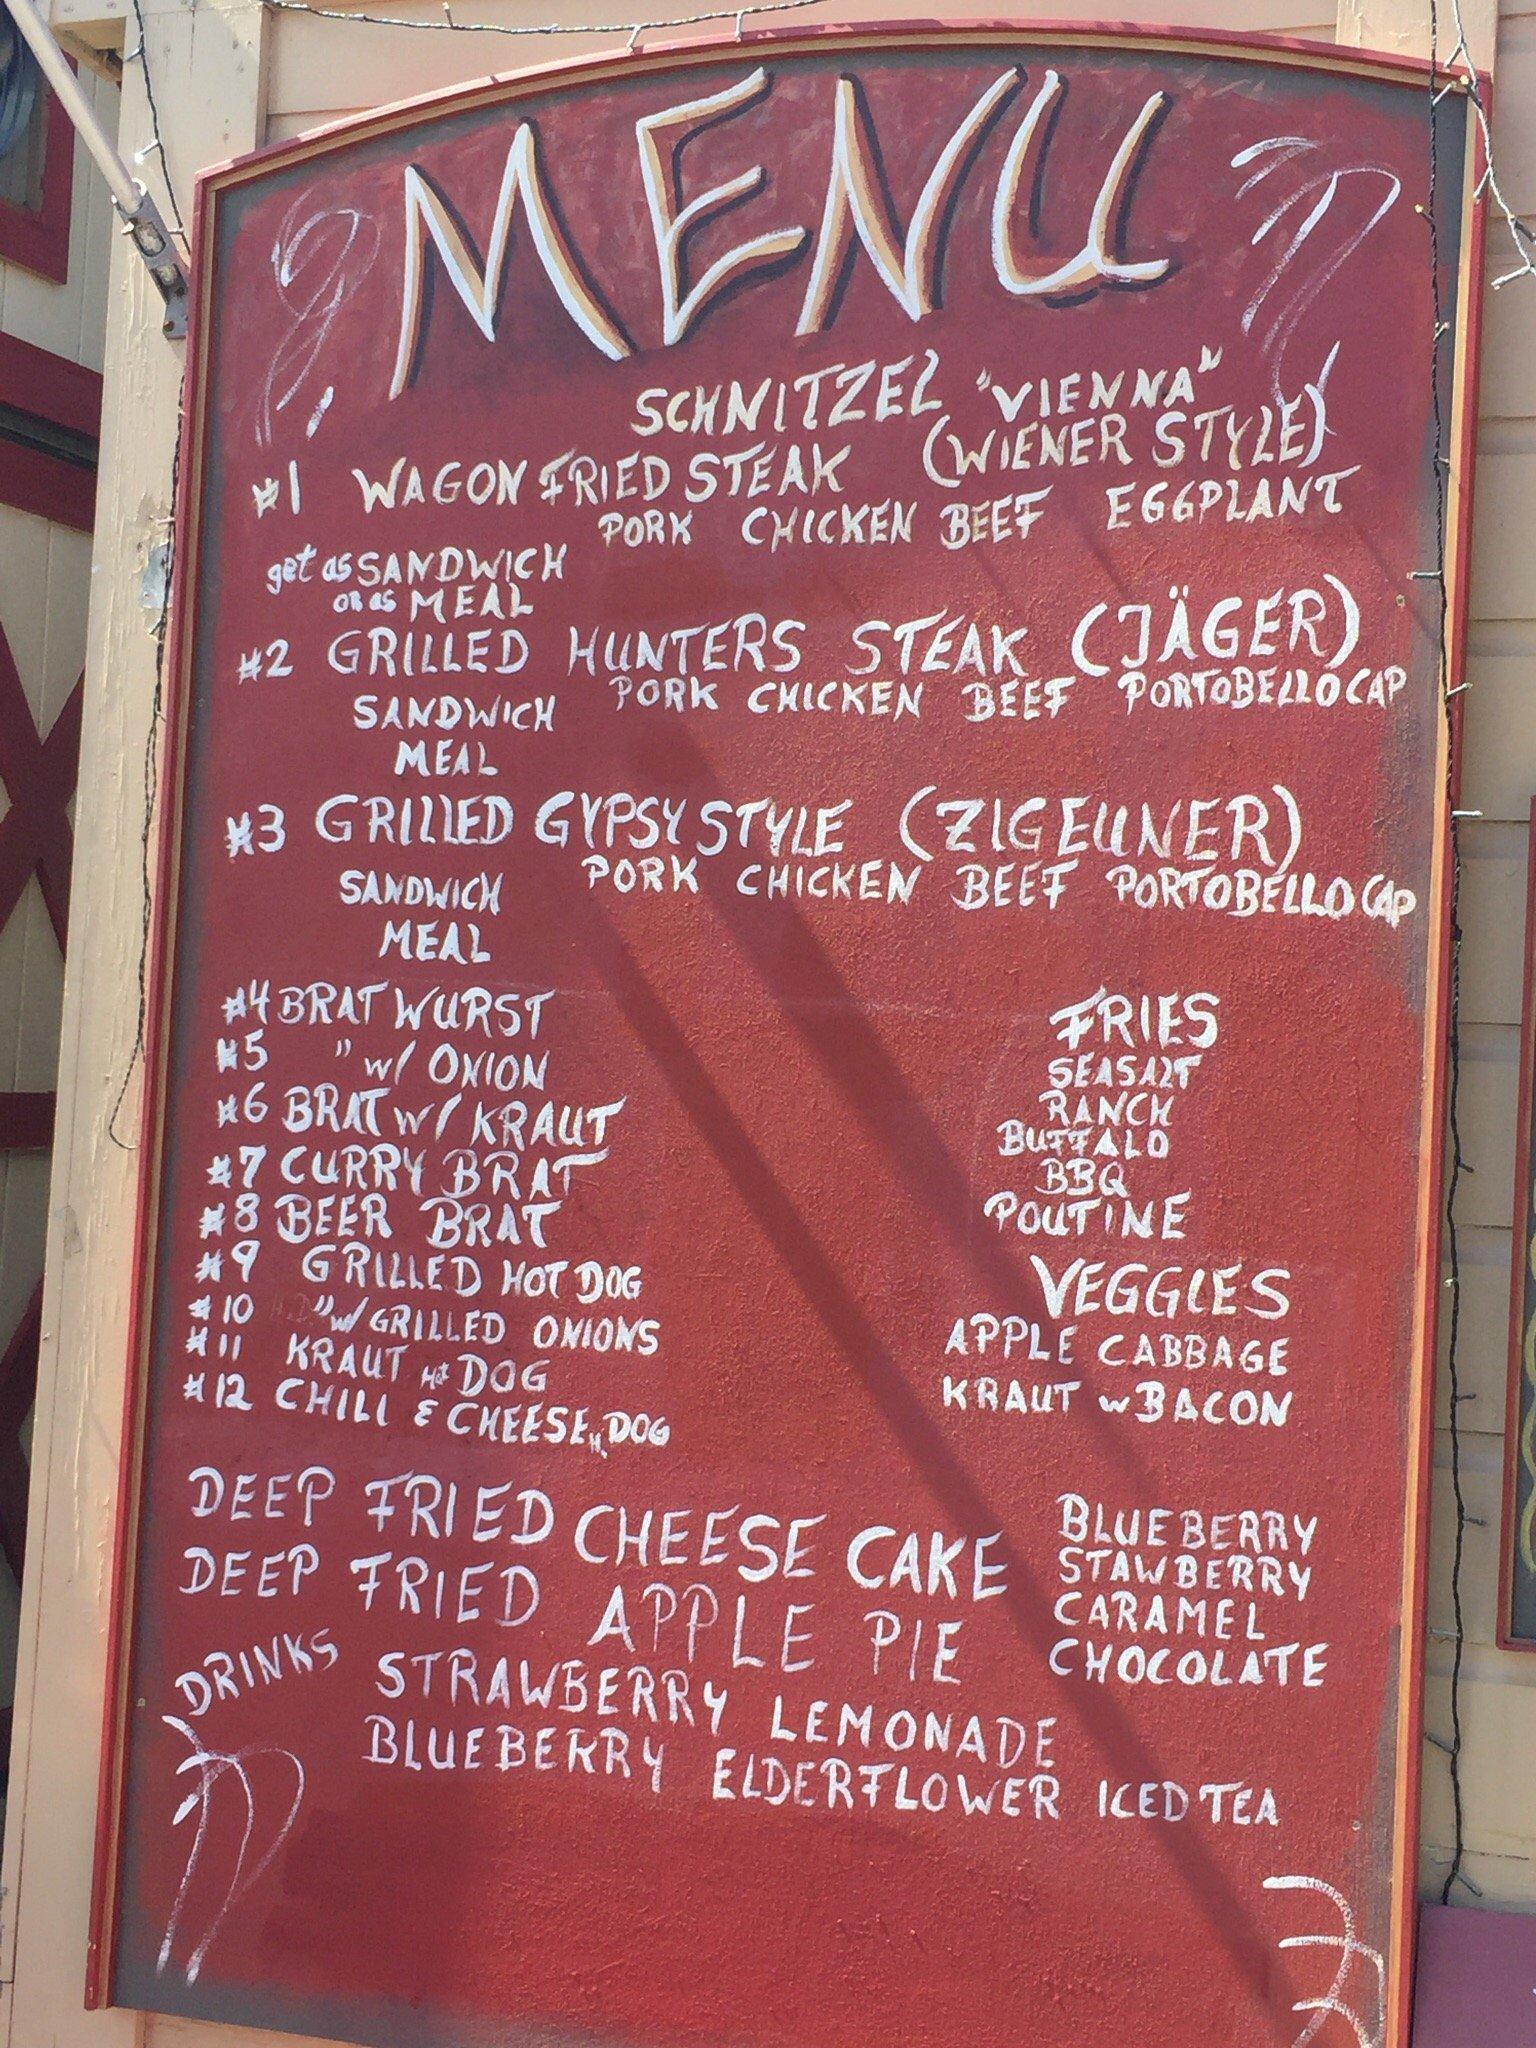 MENU
SCHNITZEL "VIENNA"
#1 WAGON FRIED STEAK (WIENER STYLE)
PORK CHICKEN BEEF EGGPLANT
get as SANDWICH
OR as MEAL
#2 GRILLED HUNTERS STEAK (JÄGER)
PORK CHICKEN BEEF PORTOBELLO CAP
SANDWICH
MEAL
#3 GRILLED GYPSY STYLE (ZIGEUNER)
PORK CHICKEN BEEF PORTOBELLO CAP
SANDWICH
MEAL
#4 BRATWURST
#5 " w/ ONION
#6 BRAT w/ KRAUT
#7 CURRY BRAT
#8 BEER BRAT
#9 GRILLED HOT DOG
#10 " w/ GRILLED ONIONS
#11 KRAUT Hot DOG
#12 CHILI & CHEESE H. DOG
FRIES
SEASALT
RANCH
BUFFALO
BBQ
POUTINE
VEGGIES
APPLE CABBAGE
KRAUT w BACON
DEEP FRIED CHEESE CAKE
DEEP FRIED APPLE PIE
BLUEBERRY
STAWBERRY
CARAMEL
CHOCOLATE
DRINKS
STRAWBERRY LEMONADE
BLUEBERRY ELDERFLOWER ICED TEA